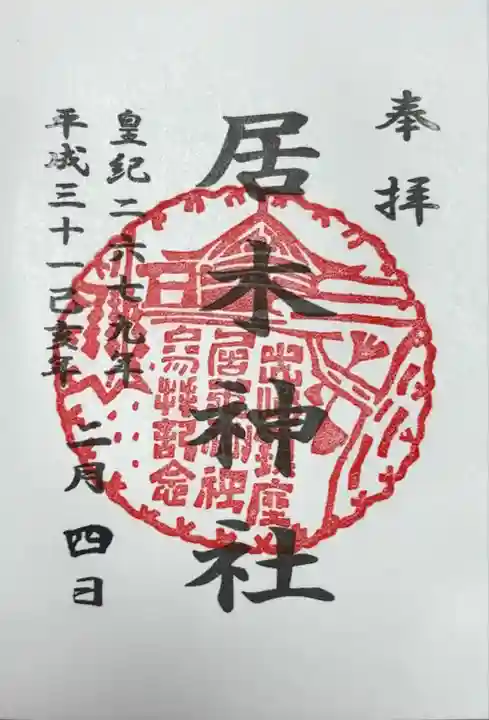 奉拝
居木神社
皇紀二六七九年
平成三十一己亥年
二月四日
居木神社
参拝記念